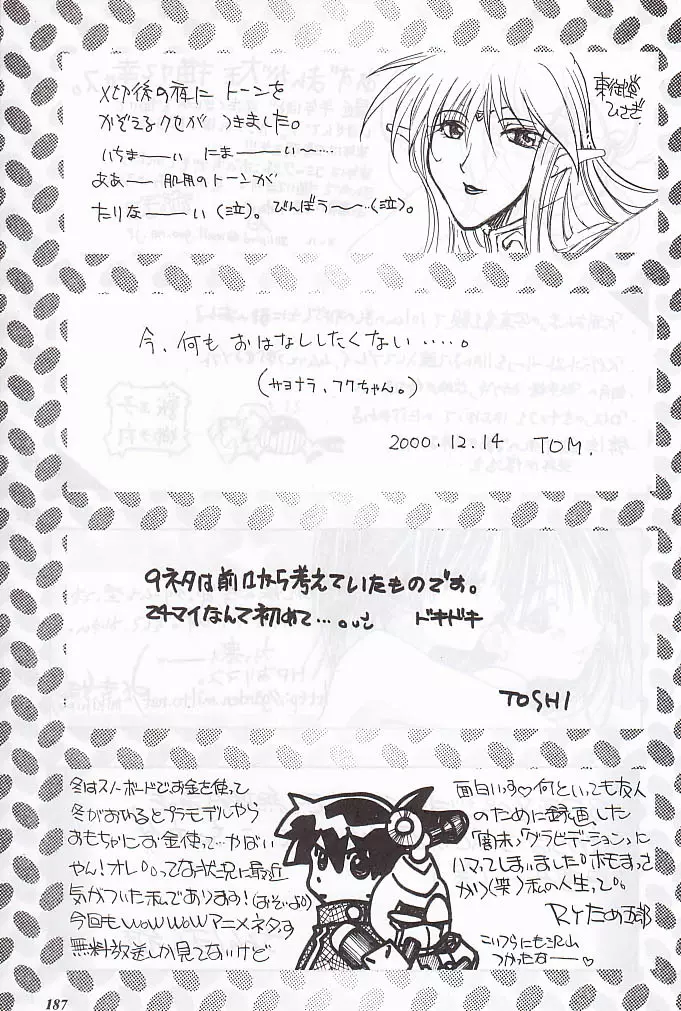 〆切後の夜に トーンを
かぞえるクセが つきました。
いちまーーい にまーーーい〜‥‥
ああー 肌用のトーンが
たりなーーーい(泣)。びんぼう〜〜‥(泣)。
東御堂
ひさぎ
今、何も おはなししたくない‥‥‥。
(サヨナラ、フクちゃん。)
2000.12.14 TOM.
9ネタは前々から考えていたものです。
24マイなんて初めて‥‥。 ドキドキ
TOSHI
冬はスノーボードでお金を使って
冬がおわるとプラモデルやら
おもちゃにお金使って‥かばい
やん!オレ。。ってな状況に最近
気がついた私であります!(おそいよ!)
今回もWOWWOWアニメネタす
無料放送しか見てないけど
面白いっす♡何といっても友人
のために録画した
「闇末」「グラビテーション」に
ハマってしまいました。ホモまっさ
かり(笑)私の人生って。
RYため五郎
こいつらにも沢山
つかったなー♡
187